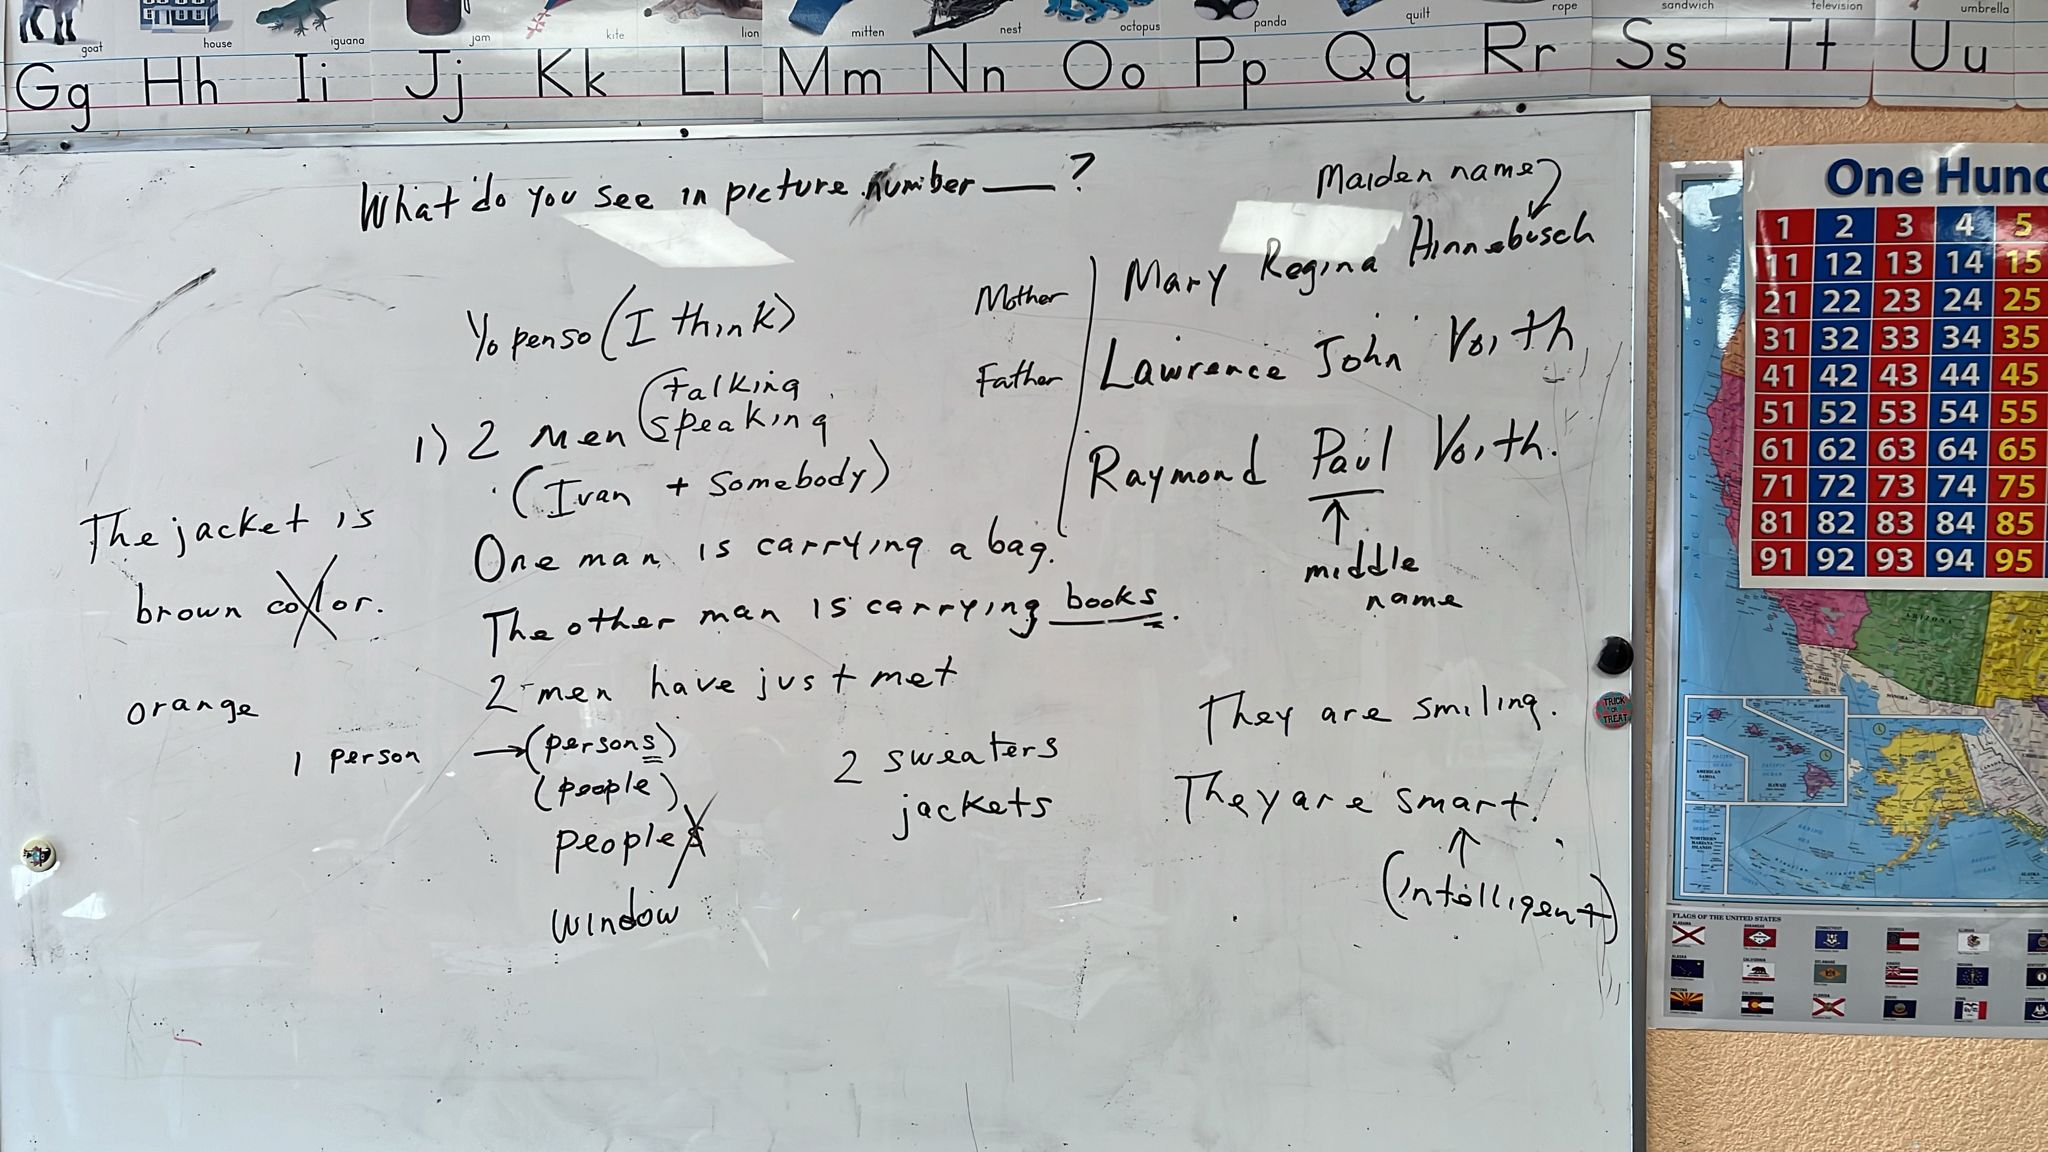 goat
house
iguana
jam
kite
lion
mitten
nest
octopus
panda
quilt
rope
sandwich
television
umbrella
Gg Hh Ii Jj Kk Ll Mm Nn Oo Pp Qq Rr Ss Tt Uu
What do you see in picture number ___?
Maiden name
Mother
Mary Regina Hinnebusch
Yo penso (I think)
Father
Lawrence John Voith
talking
1) 2 men speaking
(Ivan + Somebody)
Raymond Paul Voith.
middle
name
The jacket is
brown color.
orange
One man is carrying a bag.
The other man is carrying books.
2 men have just met
1 person → (persons)
(people)
peoples
window
2 sweaters
jackets
They are smiling.
They are smart.
(intelligent)
One Hund
1 2 3 4 5
11 12 13 14 15
21 22 23 24 25
31 32 33 34 35
41 42 43 44 45
51 52 53 54 55
61 62 63 64 65
71 72 73 74 75
81 82 83 84 85
91 92 93 94 95
PACIFIC OCEAN
ARIZONA
TRICK
OR
TREAT
FLAGS OF THE UNITED STATES